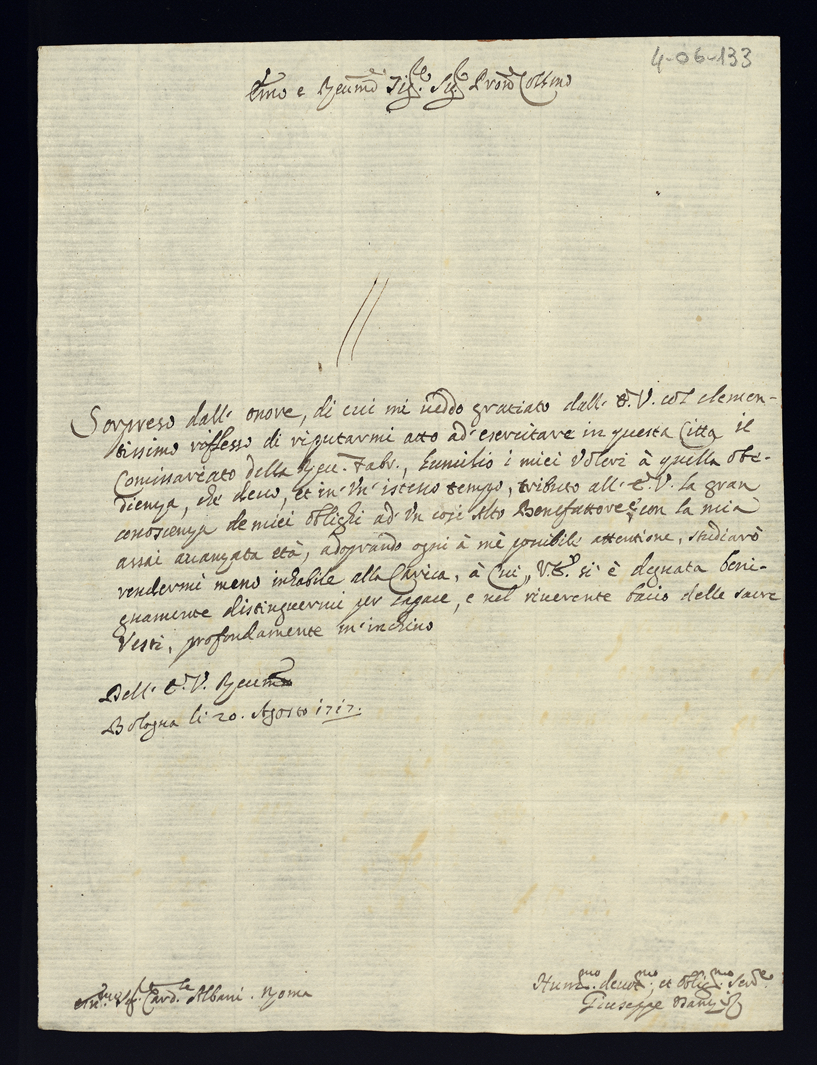 4-06-133
Emo e Reumo Sig.re Sig.re Prone Colmo
Sorpreso dall' onore, di cui mi uedo gratiato dall' E. V. col clemen-
tissimo riflesso di riputarmi atto ad' esercitare in questa Citta il
Comissariato della Reu. Fabr., humilio i miei Voleri à quella obe-
dienza, che deuo, et in' un' istesso tempo, tributo all' E. V. la gran
conoscenza de miei oblighi ad' un cosi Alto Benefattore, e con la mia
assai auanzata età, adoprando ogni à mè possibile attentione, studiarò
rendermi meno inhabile alla Carica, à Cui, V. E. si è degnata beni-
gnamente distinguermi per capace, e nel riuerente bacio delle sacre
Vesti, profondamente m' inchino
Dell' E. V. Reuma
Bologna li 20. Agosto 1717.
Sig.re Card.le Albani. Roma
Humo. deuotmo. et obligmo. Serue
Giuseppe